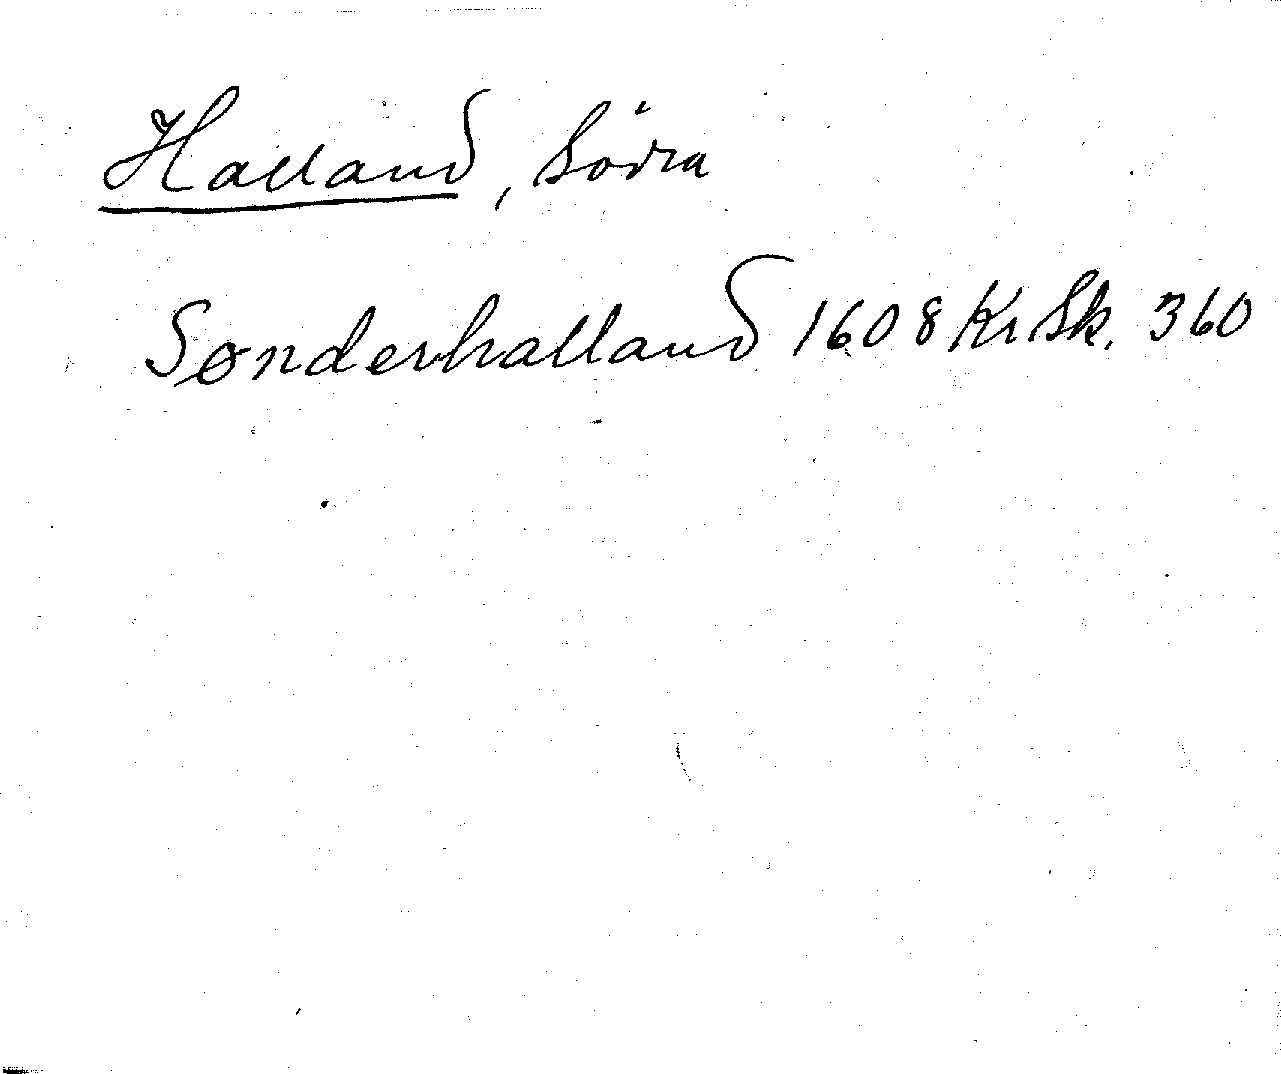 Halland, Södra
Sønderhalland 1608 Kr Sk. 360